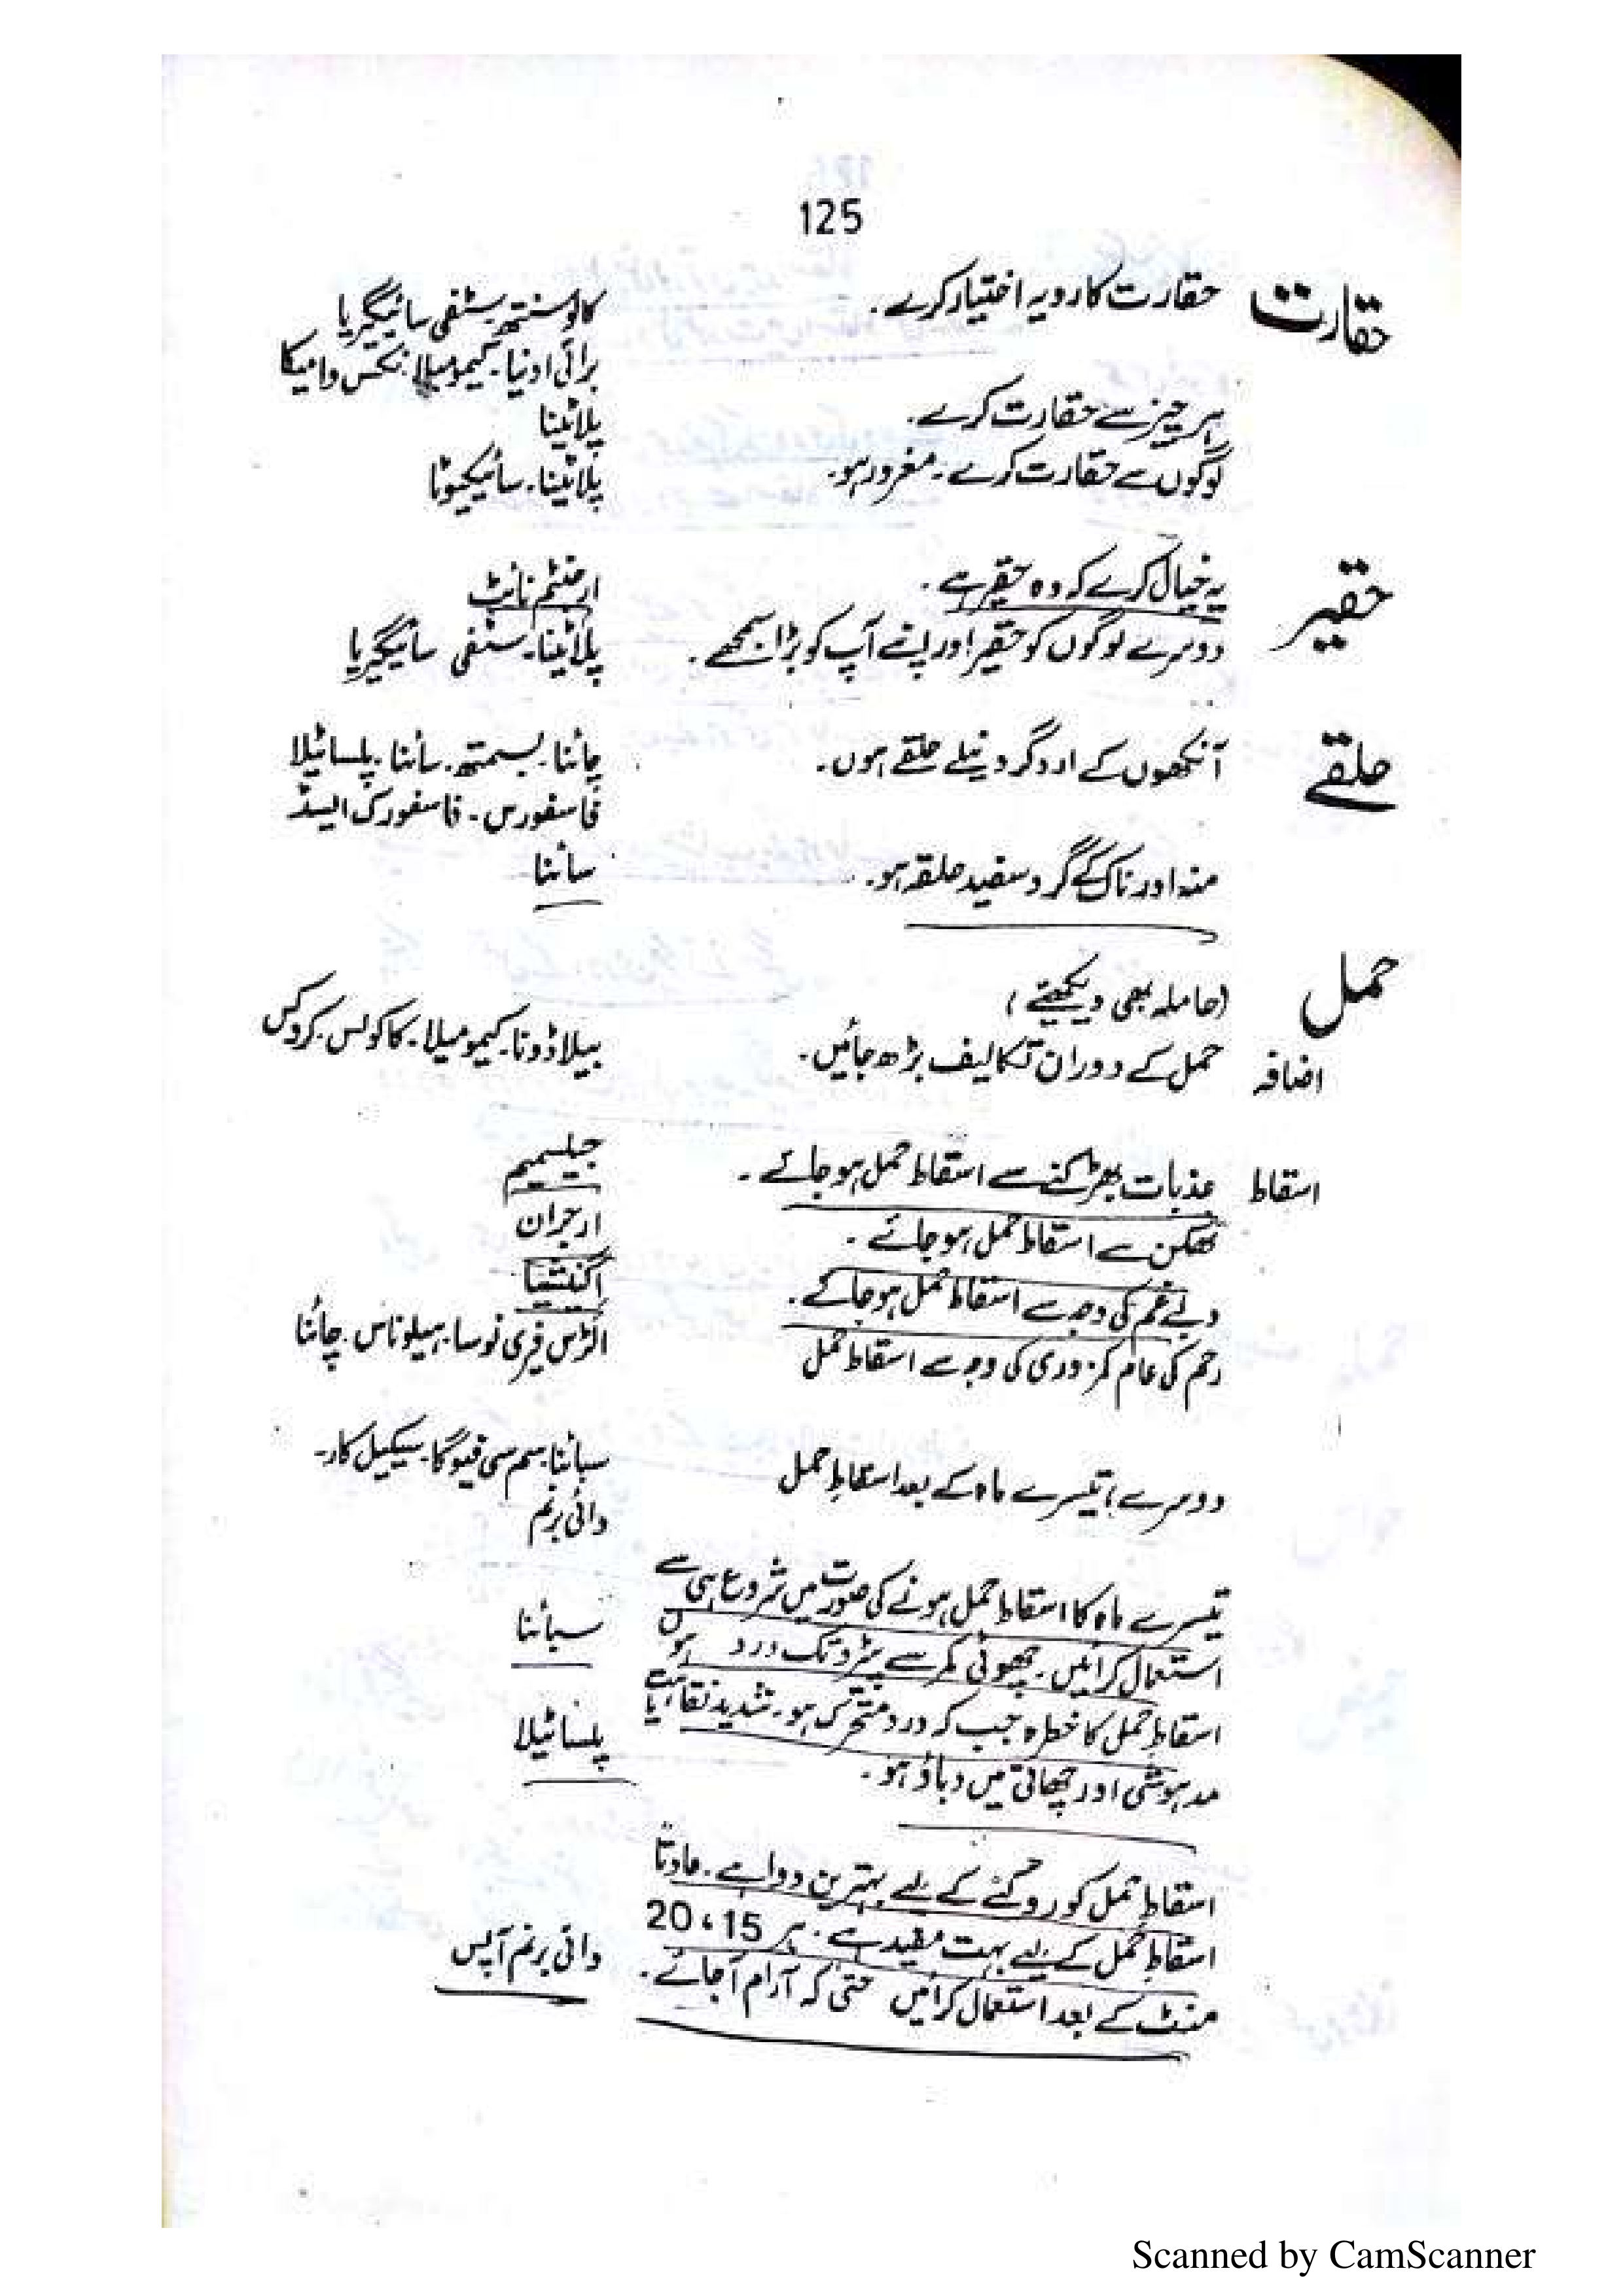 125
حقارت حقارت کا رویہ اختیار کرے۔ کالوسنتھ۔ سٹفی سائیگیریا
برائی اونیا۔ کیمومیلا۔ نکس وامیکا
ہر چیز سے حقارت کرے۔ پلاٹینا
لوگوں سے حقارت کرے۔ مغرور ہو۔ پلاٹینا۔ سائیکیوٹا
حقیر یہ خیال کرے کہ وہ حقیر ہے۔ ارجنٹم نائٹ
دوسرے لوگوں کو حقیر اور اپنے آپ کو بڑا سمجھے۔ پلاٹینا۔ سٹفی سائیگیریا
حلقے آنکھوں کے ارد گرد نیلے حلقے ہوں۔ چائنا۔ بسمتھ۔ سائنا۔ پلساٹیلا
فاسفورس۔ فاسفورک ایسڈ
منہ اور ناک کے گرد سفید حلقہ ہو۔ سائنا
حمل (حاملہ بھی دیکھیئے)
اضافہ حمل کے دوران تکالیف بڑھ جائیں۔ بیلاڈونا۔ کیمومیلا۔ کاکولس۔ کروکس
اسقاط جذبات بھڑکنے سے اسقاط حمل ہو جائے۔ جیلسیمیم
تھکن سے اسقاط حمل ہو جائے۔ ارجران
دبے غم کی وجہ سے اسقاط حمل ہو جائے۔ اگنشیا
رحم کی عام کمزوری کی وجہ سے اسقاط حمل الٹرس فیری نوسا۔ ہیلوناس۔ چائنا
دوسرے، تیسرے ماہ کے بعد اسقاطِ حمل سبائنا۔ سم سی فیوگا۔ سیکیل کار۔
وائی برنم
تیسرے ماہ کا اسقاط حمل ہونے کی صورت میں شروع ہی سے
استعمال کرائیں۔ چھوٹی کمر سے پیڑو تک درد ہوں سبائنا
اسقاطِ حمل کا خطرہ جب کہ درد متحرک ہو۔ شدید نقاہت یا
مدہوشی اور چھاتی میں دباؤ ہو۔ پلساٹیلا
اسقاطِ حمل کو روکنے کے لیے بہترین دوا ہے۔ عادتاً
اسقاطِ حمل کے لیے بہت مفید ہے۔ ہر 15، 20
منٹ کے بعد استعمال کرائیں حتیٰ کہ آرام آجائے۔ وائی برنم آپس
Scanned by CamScanner